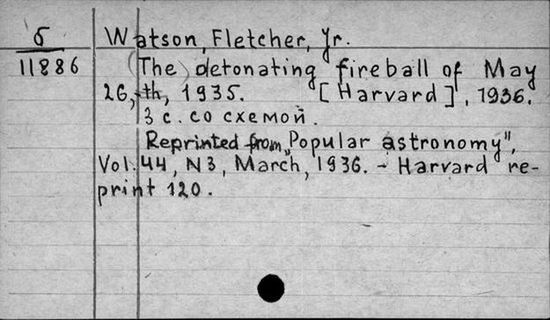 Б
11886
Watson, Fletcher, Jr.
(The) detonating fireball of May
26,-th, 1935. [Harvard], 1936.
3 с. со схемой.
Reprinted from „Popular astronomy",
Vol. 44, N3, March, 1936. - Harvard re-
print 120.